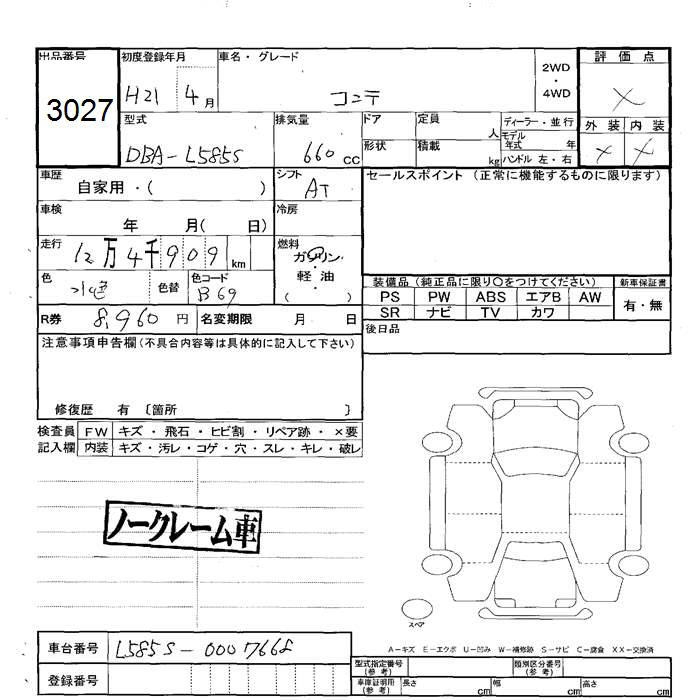 出品番号 初度登録年月 車名・グレード 2WD・4WD 評価点
3027 H21 4月 コンテ ×
型式 排気量 ドア 定員 人 ディーラー・並行 外装 内装
DBA-L585S 660 cc 形状 積載 kg モデル年式 年 × ×
ハンドル 左・右
車歴 自家用・( ) シフト AT セールスポイント(正常に機能するものに限ります)
車検 年 月( 日) 冷房
走行 12万4千909 km 燃料 ガソリン・軽・油 ( )
色 水色 色替 色コード B69 装備品(純正品に限り○をつけてください) 新車保証書
PS PW ABS エアB AW 有・無
SR ナビ TV カワ
R券 8,960円 名変期限 月 日 後日品
注意事項申告欄(不具合内容等は具体的に記入して下さい)
修復歴 有 〔箇所 〕
検査員 FW キズ・飛石・ヒビ割・リペア跡・×要
記入欄 内装 キズ・汚レ・コゲ・穴・スレ・キレ・破レ
ノークレーム車
スペア
A-キズ E-エクボ U-凹み W-補修跡 S-サビ C-腐食 XX-交換済
車台番号 L585S-0007668
登録番号
型式指定番号(参考) 類別区分番号(参考)
車庫証明用(参考) 長さ cm 幅 cm 高さ cm